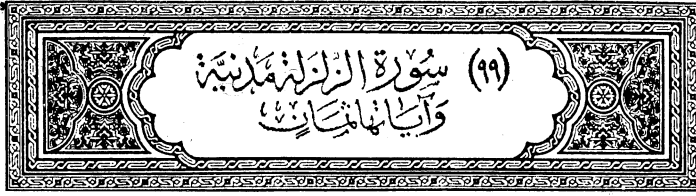 (٩٩) سُورَةُ الزَّلْزَلَةِ مَدَنِيَّةٌ
وَآيَاتُهَا ثَمَانٍ